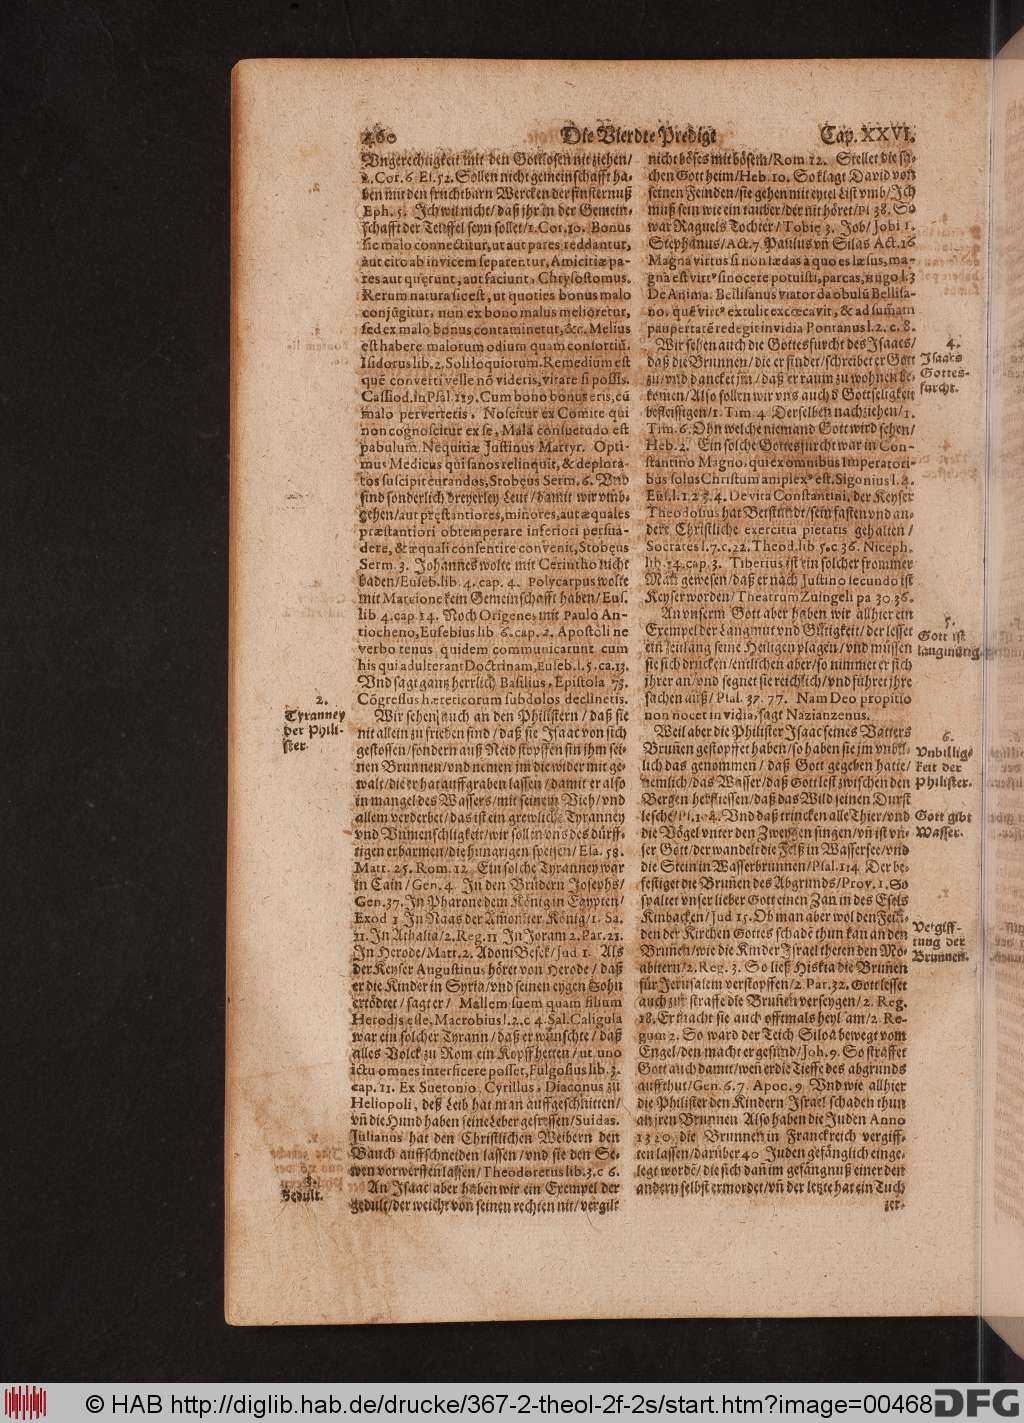 460 Die Vierdte Predigt Cap. XXVI.
Vngerechtigkeit mit den Gottlosen nit ziehen/
2. Cor. 6 El. 52. Sollen nicht gemeinschafft ha-
ben mit den fruchtbarn Wercken der finsternuß
Eph. 5. Ich wil nicht/ daß jhr in der Gemein-
schafft der Teuffel seyn sollet/ 1. Cor. 10. Bonus
sic malo connectitur, ut aut pares reddantur,
aut cito ab invicem separentur, Amicitiæ pa-
res aut quęrunt, aut faciunt, Chrysostomus.
Rerum natura sic est, ut quoties bonus malo
conjūgitur, non ex bono malus melioretur,
sed ex malo bonus contaminetur, &c. Melius
est habere malorum odium quam consortiū.
Isidorus lib. 2. Soliloquiorum. Remedium est
quē converti velle nō videris, vitare si possis.
Cassiod. in Psal. 119. Cum bono bonus eris, cū
malo perverteris. Noscitur ex Comite qui
non cognoscitur ex se, Mala consuetudo est
pabulum Nequitiæ Justinus Martyr. Opti-
mus Medicus qui sanos relinquit, & deplora-
tos suscipit curandos, Stobęus Serm. 6. Vnd
sind sonderlich dreyerley Leut/ damit wir vmb-
gehen/ aut pręstantiores, minores, aut æquales
præstantiori obtemperare inferiori persua-
dere, & æquali consentire convenit, Stobęus
Serm. 3. Johannes wolte mit Cerintho nicht
baden/ Euseb. lib. 4. cap. 4. Polycarpus wolte
mit Marcione kein Gemeinschafft haben/ Eus.
lib 4. cap 14. Noch Origenes mit Paulo An-
tiocheno, Eusebius lib 6. cap. 2. Apostoli ne
verbo tenus quidem communicarunt cum
his qui adulterant Doctrinam, Euseb. l. 5. ca. 13.
Vnd sagt gantz herrlich Basilius, Epistola 73.
Cōgressus hæreticorum subdolos declinetis.
2.
Tyranney
der Phili-
ster.
Wir sehen auch an den Philistern/ daß sie
nit allein zu frieden sind/ daß sie Isaac von sich
gestossen/ sondern auß Neid stopffen sie jhm sei-
nen Brunnen/ vnd nemen jm die wider mit ge-
walt/ die er hat auffgraben lassen/ damit er also
in mangel des Wassers/ mit seinem Vieh/ vnd
allem verderbet/ das ist ein grewliche Tyranney
vnd Vnmenschligkeit/ wir sollen vns des dürff-
tigen erbarmen/ die hungrigen speisen/ Esa. 58.
Matt. 25. Rom. 12. Ein solche Tyranney war
in Cain/ Gen. 4. In den Brüdern Josephs/
Gen. 37. In Pharone dem König in Egypten/
Exod 1. In Naas der Amoniter König/ 1. Sa.
11. In Athalia/ 2. Reg. 11 In Joram 2. Par. 21.
In Herode/ Matt. 2. Adoni Besek/ Jud 1. Als
der Keyser Augustinus höret von Herode/ daß
er die Kinder in Syria/ vnd seinen eygen Sohn
ertödtet/ sagt er/ Mallem suem quam filium
Herodis esse, Macrobius l. 2. c 4. Sal. Caligula
war ein solcher Tyrann/ daß er wünschte/ daß
alles Volck zu Rom ein Kopff hetten/ ut uno
ictu omnes interficere posset, Fulgosius lib. 3.
cap. 11. Ex Suetonio. Cyrillus, Diaconus zu
Heliopoli, deß Leib hat man auffgeschnitten/
vñ die Hund haben seine Leber gefressen/ Suidas.
Julianus hat den Christlichen Weibern den
Bauch auffschneiden lassen/ vnd sie den Se-
wen vorwerffen lassen/ Theodoretus lib. 3. c 6.
3.
Gedult.
An Isaac aber haben wir ein Exempel der
gedult/ der weicht von seinen rechten nit/ vergilt
nicht böses mit bösem/ Rom 12. Stellet die sa-
chen Gott heim/ Heb. 10. So klagt David von
seinen Feinden/ sie gehen mit eytel List vmb/ Ich
muß sein wie ein tauber/ der nit höret/ Ps 38. So
war Raguels Tochter/ Tobię 3. Job/ Jobi 1.
Stephanus/ Act. 7. Paulus vñ Silas Act. 16
Magna virtus si non lædas à quo es læsus, ma-
gna est virt⁹ si nocere potuisti, parcas, Hugo l. 3
De Anima. Bellisanus viator da obulū Bellisa-
no, quē virt⁹ extulit excœcavit, & ad sum̄am
paupertatē redegit invidia Pontanus l. 2. c. 8.
4.
Isaacs
Gottes-
furcht.
Wir sehen auch die Gottesfurcht des Isaacs/
daß die Brunnen/ die er findet/ schreibet er Gott
zu/ vnd dancket jm/ daß er raum zu wohnen be-
komen/ Also sollen wir vns auch d Gottseligkeit
befleissigen/ 1. Tim. 4. Derselben nachziehen/ 1.
Tim. 6. Ohn welche niemand Gott wird sehen/
Heb. 2. Ein solche Gottesfurcht war in Con-
stantino Magno. qui ex omnibus Imperatori-
bus solus Christum amplex⁹ est. Sigonius l. 4.
Eus. l. 1. 2 3. 4. De vita Constantini. der Keyser
Theodosius hat Betstundt/ sein fasten vnd an-
dere Christliche exercitia pietatis gehalten/
Socrates l. 7. c. 22. Theod. lib 5. c 36. Niceph.
lib. 14. cap. 3. Tiberius ist ein solcher frommer
Man gewesen/ daß er nach Justino secundo ist
Keyser worden/ Theatrum Zuingeli pa 3036.
5.
Gott ist
langmütig.
An vnserm Gott aber haben wir allhier ein
Exempel der Langmut vnd Gütigkeit/ der lesset
ein zeitlang seine Heiligen plagen/ vnd müssen
sie sich drücken/ entlichen aber/ so nimmet er sich
jhrer an/ vnd segnet sie reichlich/ vnd führet jhre
sachen auß/ Psal. 37. 77. Nam Deo propitio
non nocet invidia, sagt Nazianzenus.
6.
Vnbillig-
keit der
Philister.
Weil aber die Philister Isaac seines Vatters
Bruñen gestopffet haben/ so haben sie jm vnbil-
lich das genommen/ daß Gott gegeben hatte/
nemlich/ das Wasser/ daß Gott lest zwischen den
Bergen herfliessen/ daß das Wild seinen Durst
Gott gibt
Wasser.
lesche/ Ps. 104. Vnd daß trincken alle Thier/ vnd
die Vögel vnter den Zweygen singen/ vñ ist vn-
ser Gott/ der wandelt die Felß in Wassersee/ vnd
die Stein in Wasserbrunnen/ Psal. 114. Der be-
festiget die Bruñen des Abgrunds/ Prov. 1. So
spaltet vnser lieber Gott einen Zan in des Esels
Kinbacken/ Jud 15. Ob man aber wol den Fein-
Vergiff-
tung der
Brunnen.
den der Kirchen Gottes schadē thun kan an den
Brunen/ wie die Kinder Israel theten den Mo-
abitern/ 2. Reg. 3. So ließ Hiskia die Bruñen
für Jerusalem verstopffen/ 2 Par. 32. Gott lesset
auch zur straffe die Bruñen verseygen/ 2. Reg.
18. Er macht sie auch offtmals heyl am/ 2. Re-
gum 2. So ward der Teich Siloa bewegt vom
Engel/ den macht er gesund/ Joh. 9. So straffet
Gott auch damit/ weñ er die Tieffe des abgrunds
auffthut/ Gen. 6. 7. Apoc. 9. Vnd wie allhier
die Philister den Kindern Israel schaden thun
an jren Brunnen Also haben die Juden Anno
1320. die Brunnen in Franckreich vergiff-
ten lassen/ darüber 40 Juden gefänglich einge-
legt wordē/ die sich dañ im gefängnuß einer den
andern selbst ermordet/ vñ der letzte hat ein Tuch
zer-
© HAB http://diglib.hab.de/drucke/367-2-theol-2f-2s/start.htm?image=00468
DFG